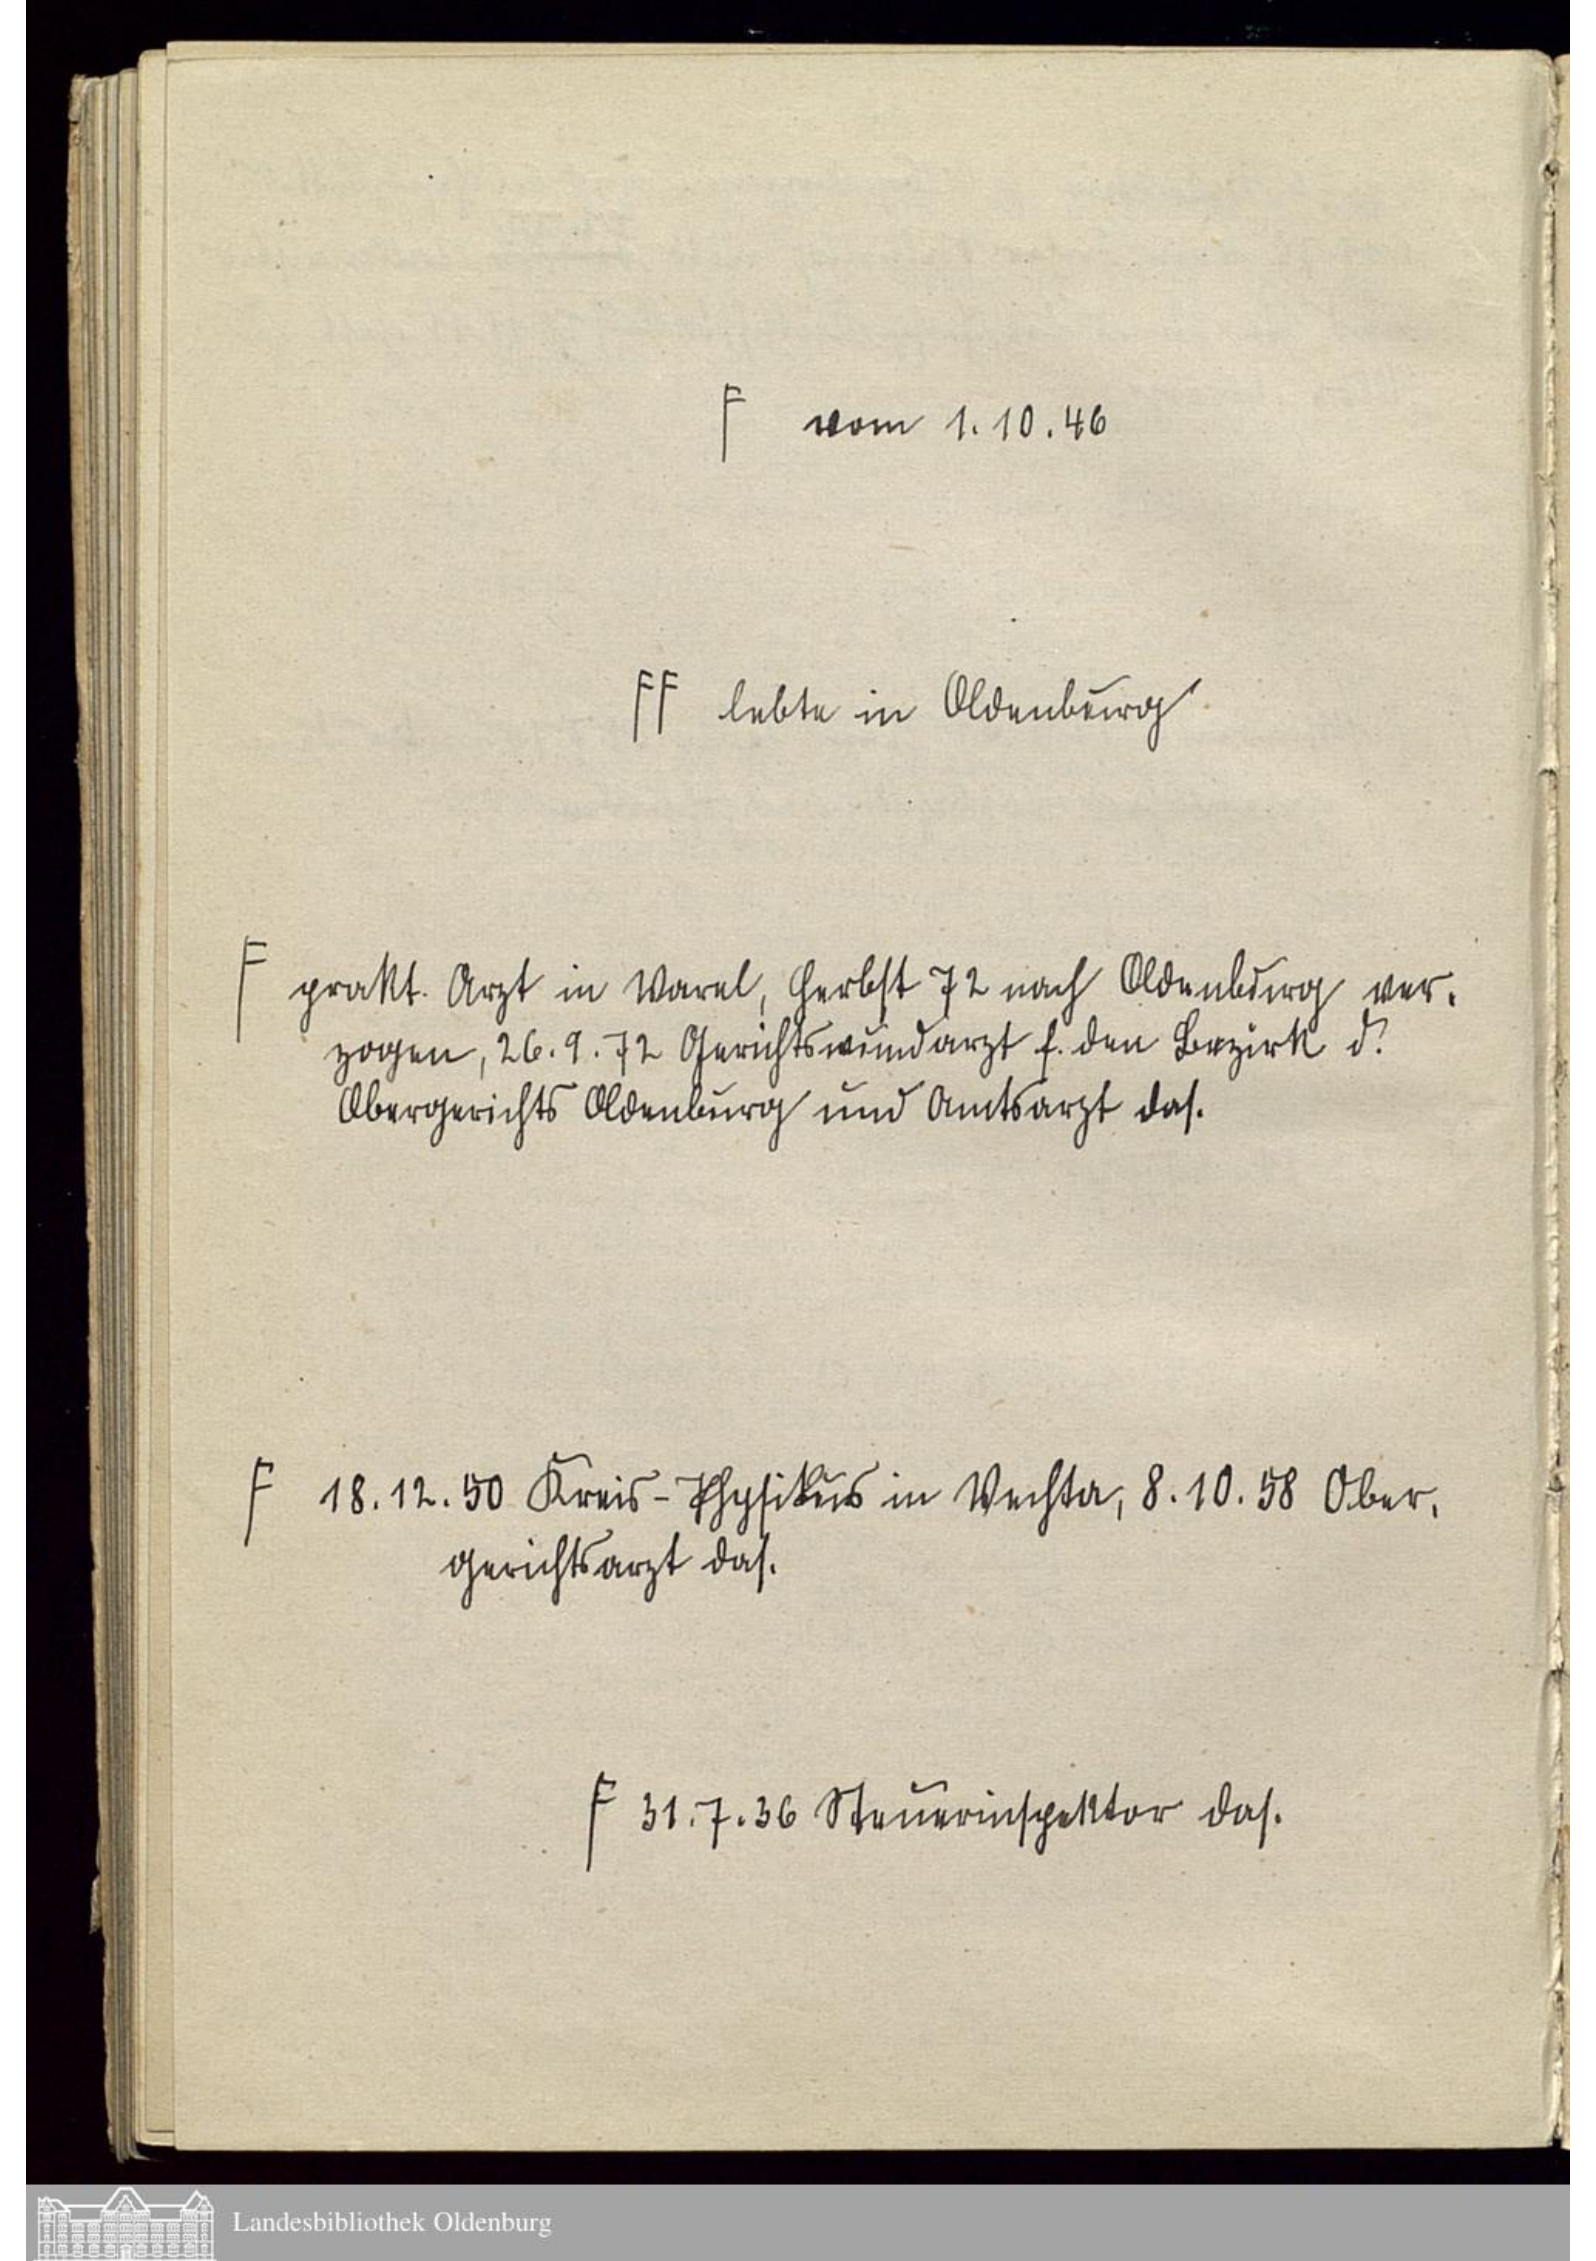 F vom 1.10.46
FF lebte in Oldenburg
F prakt. Arzt in Varel, Herbst 72 nach Oldenburg ver-
zogen, 26.9.72 Gerichtswundarzt f. den Bezirk d.
Obergerichts Oldenburg und Amtsarzt das.
F 18.12.50 Kreis-Physikus in Vechta, 8.10.58 Ober-
gerichtsarzt das.
F 31.7.36 Steuerinspektor das.
Landesbibliothek Oldenburg